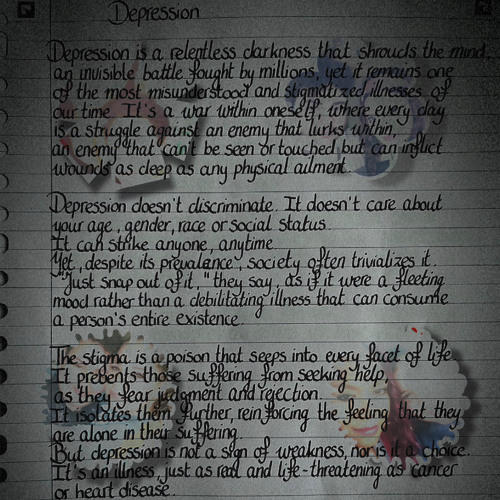 Depression
Depression is a relentless darkness that shrouds the mind,
an invisible battle fought by millions, yet it remains one
of the most misunderstood and stigmatized illnesses of
our time. It's a war within oneself, where every day
is a struggle against an enemy that lurks within,
an enemy that can't be seen or touched but can inflict
wounds as deep as any physical ailment.
Depression doesn't discriminate. It doesn't care about
your age, gender, race or social status.
It can strike anyone, anytime.
Yet, despite its prevalance, society often trivializes it.
"Just snap out of it," they say, as if it were a fleeting
mood rather than a debilitating illness that can consume
a person's entire existence.
The stigma is a poison that seeps into every facet of life.
It prebents those suffering from seeking help,
as they fear judgment and rejection.
It isolates them further, reinforcing the feeling that they
are alone in their suffering.
But depression is not a sign of weakness, nor is it a choice.
It's an illness, just as real and life-threatening as cancer
or heart disease.